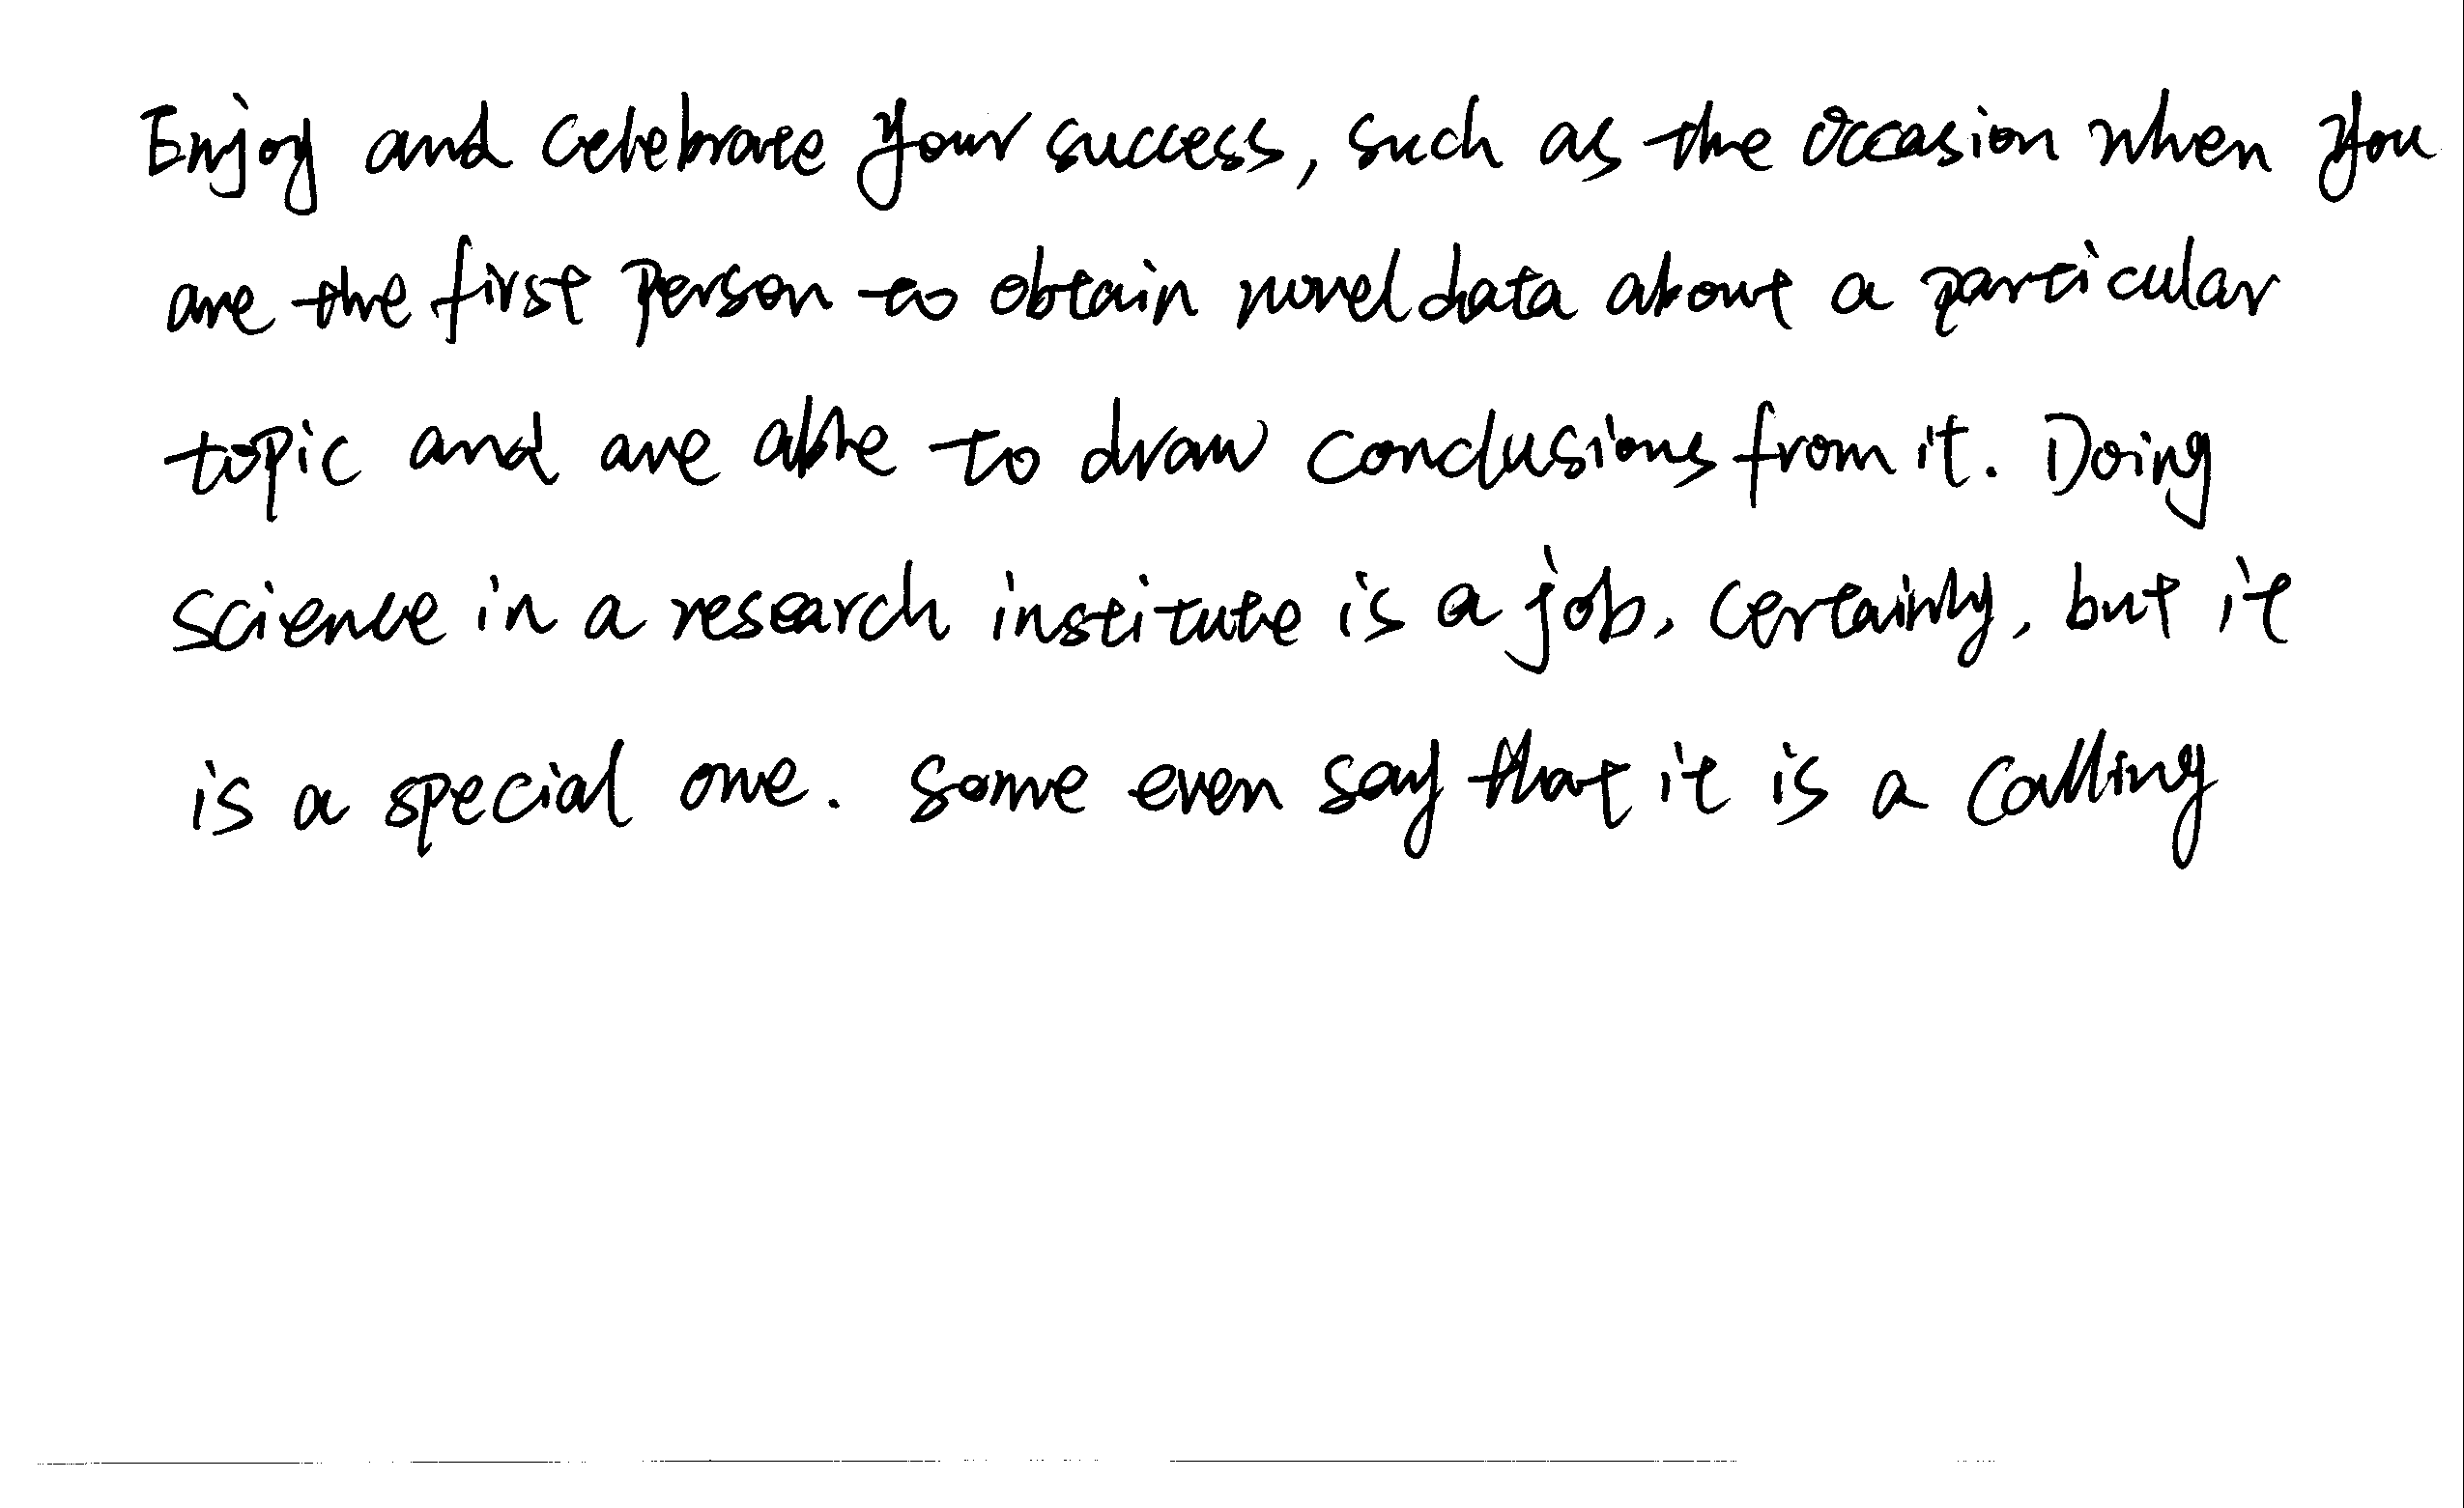 Enjoy and celebrate your success, such as the occasion when you
are the first person to obtain novel data about a particular
topic and are able to draw conclusions from it. Doing
science in a research institute is a job, certainly, but it
is a special one. Some even say that it is a calling